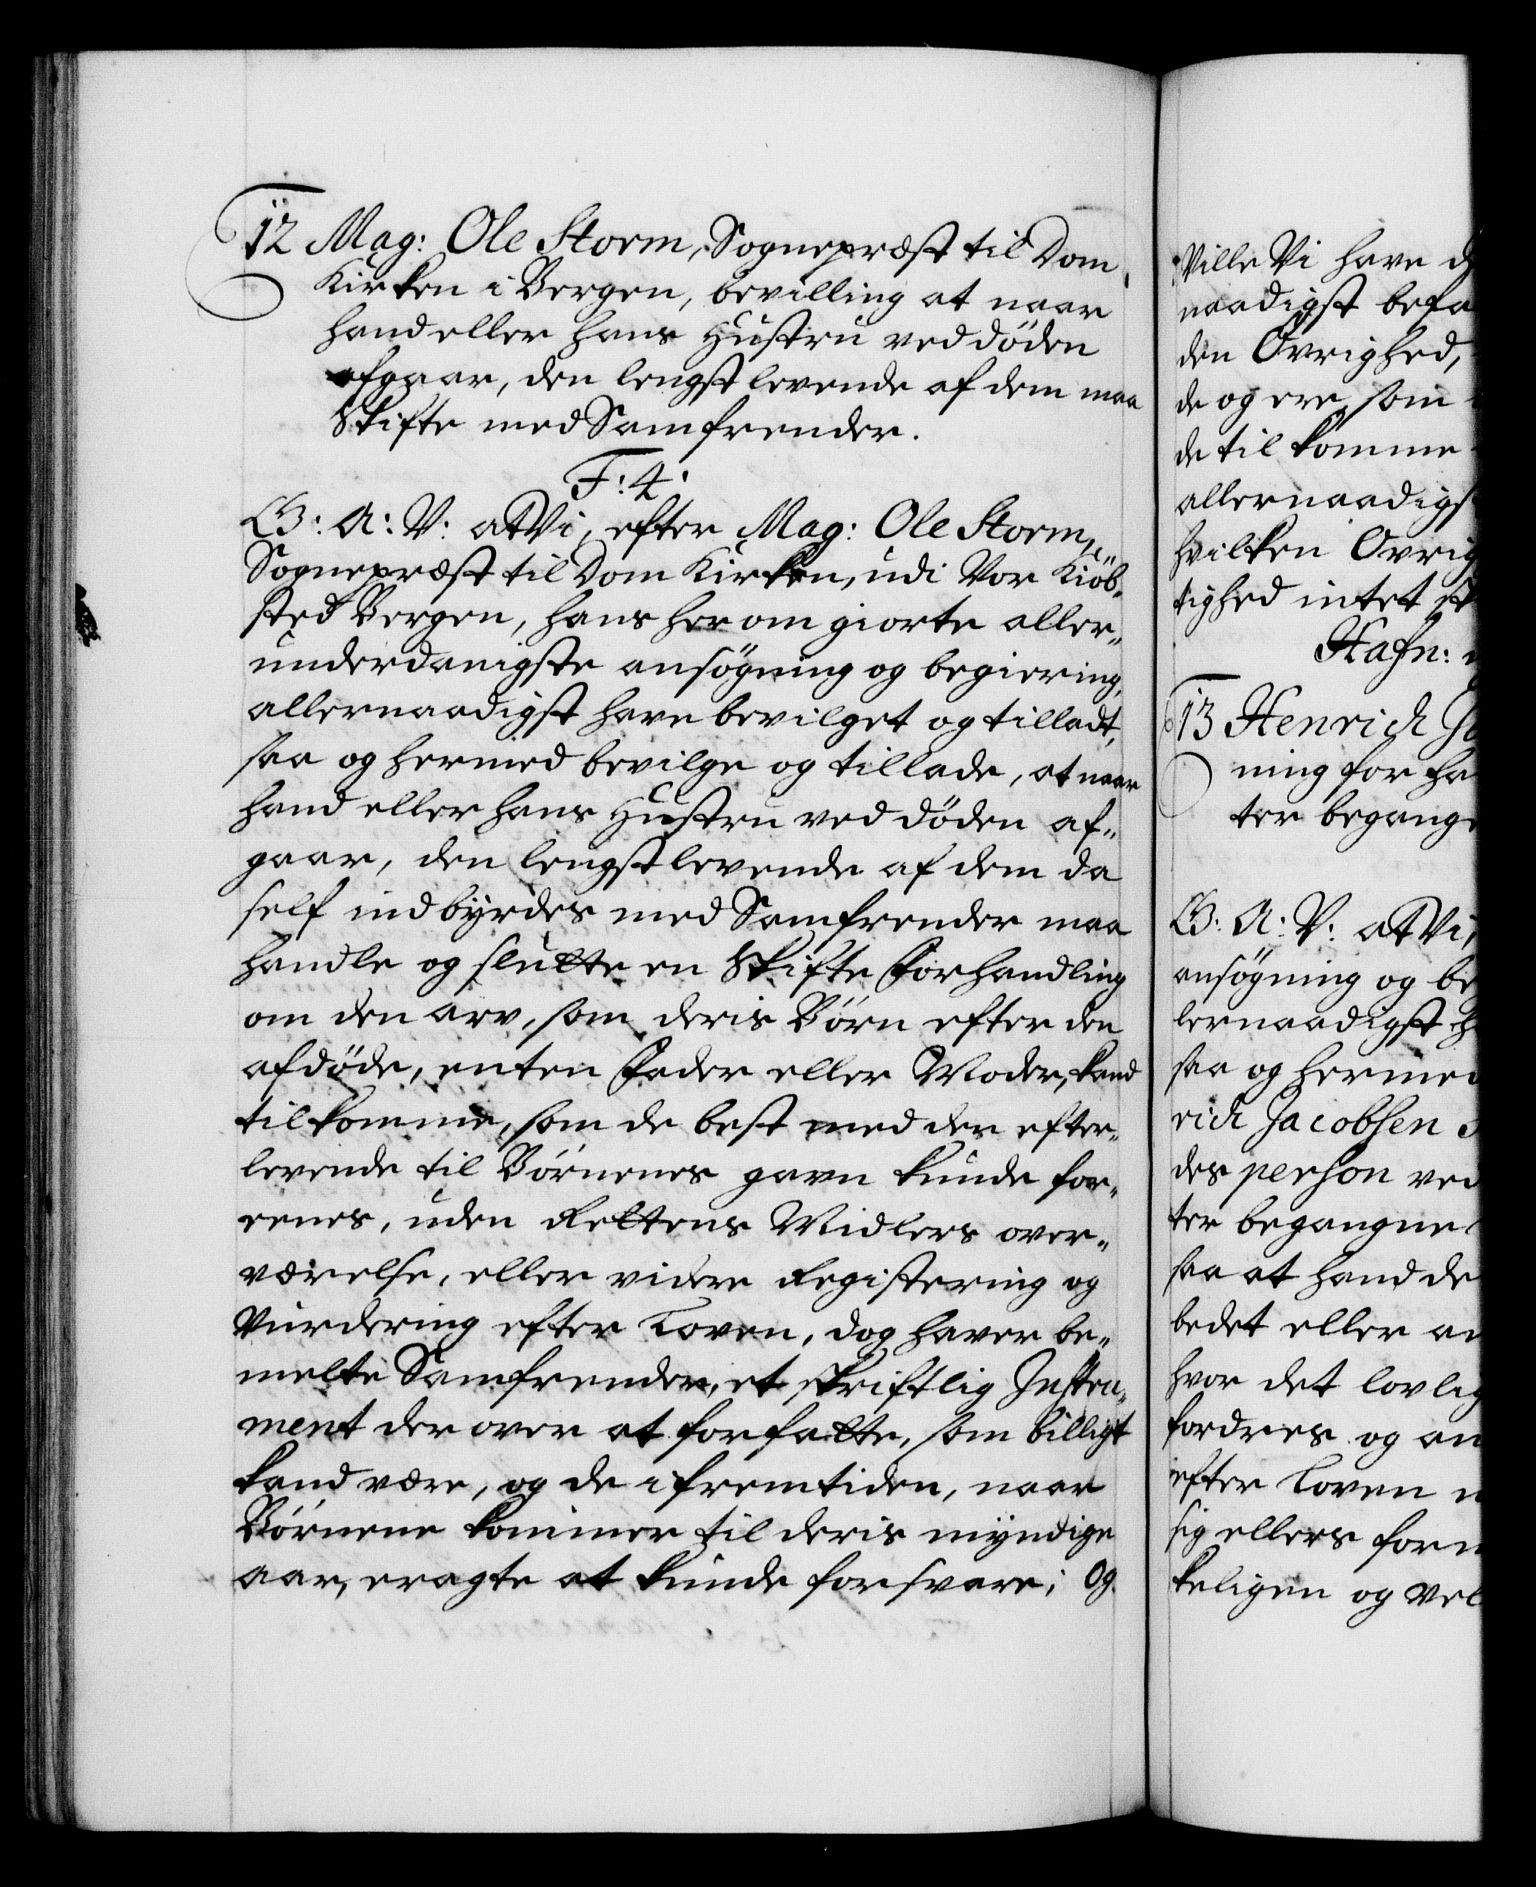 12 Mag: Ole Storm, Sognepræst til Dom
Kirken i Bergen, bevilling at naar
hand eller hans Hustru ved døden
afgaar, den lengst levende af dem maa
Skifte med Samfrender.
F: 4.
G: A: V: at Vi, efter Mag: Ole Storm,
Sognepræst til Dom Kirken, udi Vor Kiöb-
sted Bergen, hans herom giorte aller-
underdanigste ansøgning og begiering,
allernaadigst have bevilget og tilladt,
saa og hermed bevilge og tillade, at naar
hand eller hans Hustru ved döden af-
gaar, den lengstlevende af dem da
self indbyrdes med Samfrender maa
handle og slutte en Skifte Forhandling
om den arv, som deris Börn efter den
afdöde, enten Fader eller Moder, kand
tilkomme, som de best med den efter-
levende til Börnenes gavn kunde for-
eenes, uden Rettens Midlers over-
værelse, eller videre Registering og
Vurdering efter Loven, dog haver be-
melte Samfrender, et skriftlig Instru-
ment der over at forfatte, som billigt
kand være, og de i fremtiden, naar
Börnene kommer til deris myndige
aar, eragte at kunde forsvare; Og
Ville Vi have
naadigst befa
den Øvrighed,
de og ere, som
de til komme
allernaadigst
hvilken Øvrig
tighed intet
Hafn:
13 Henrich
ning for ha
ter begange
G: A: V: at Vi,
ansøgning og be
lernaadigst
saa og hermed
rich Jacobsen
des person ved
ter begangne
saa at hand de
bedet eller an
hvor det lovlig
fordres og an
efter Loven
sig ellers form
keligen og vel